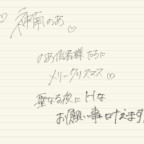 のあ信者様たちに
メリークリスマス♡
聖なる夜にHな
お願い事叶えます♡